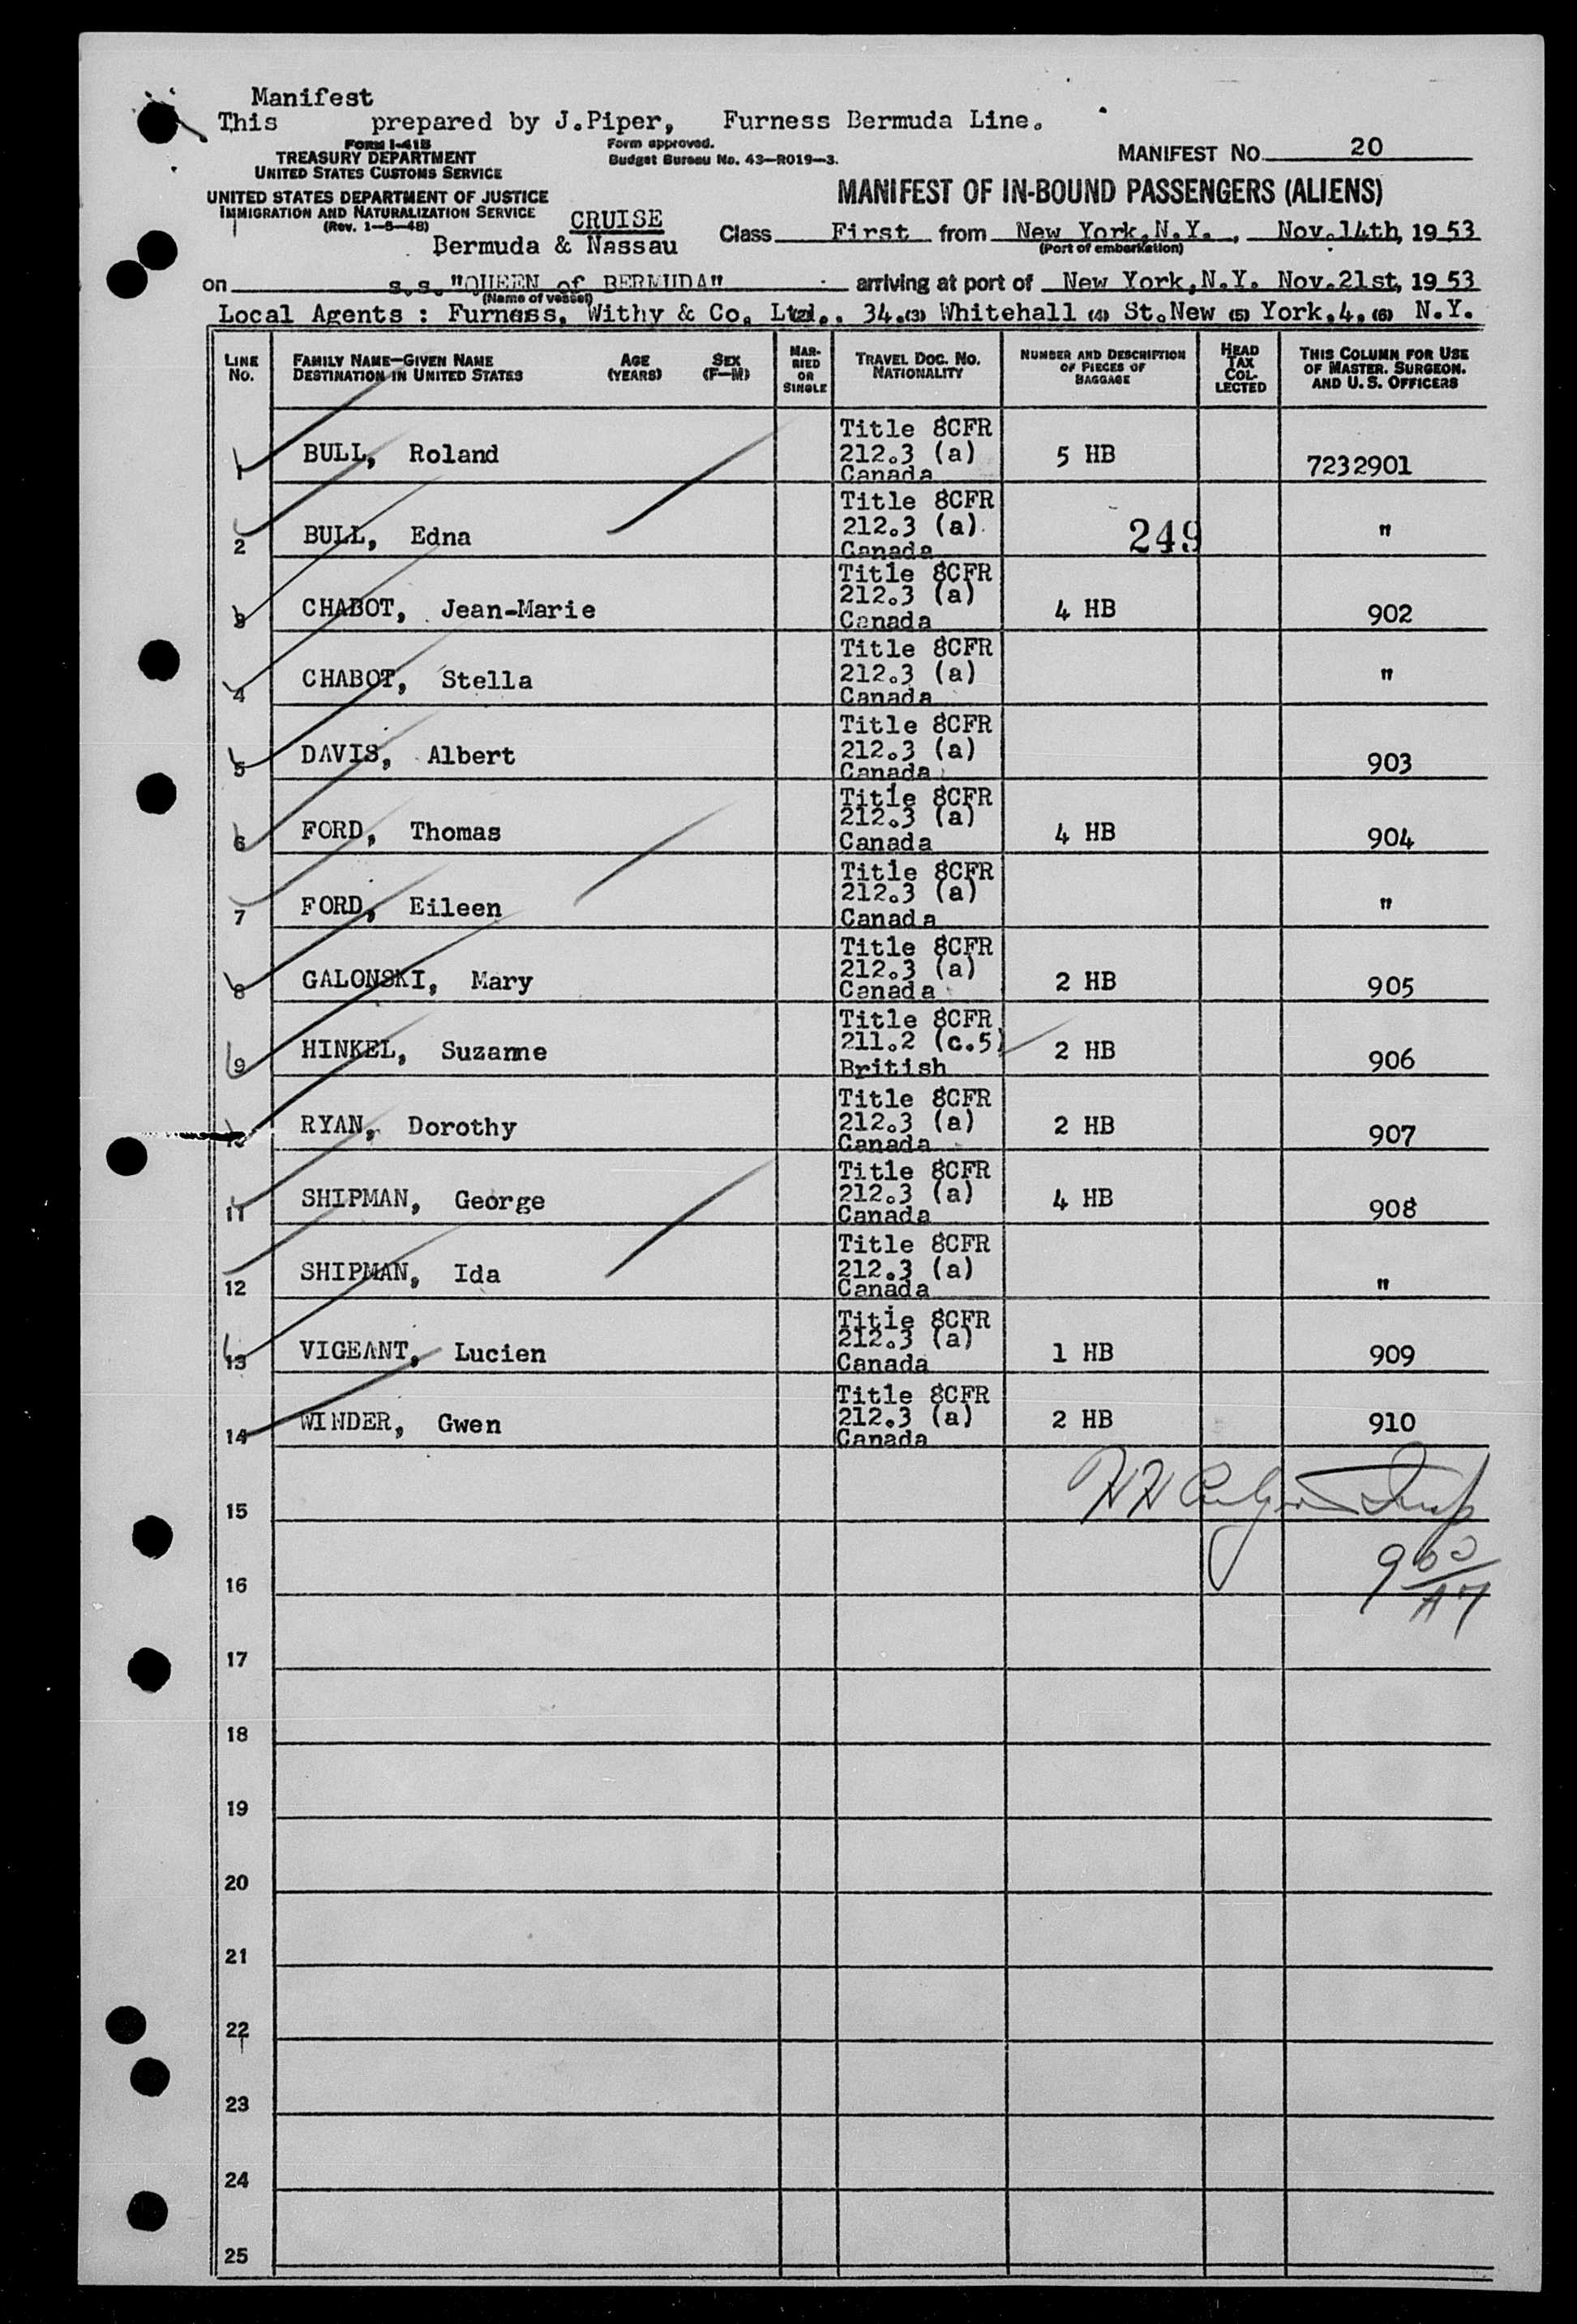 Manifest
This prepared by J.Piper, Furness Bermuda Line.
FORM I-41B
TREASURY DEPARTMENT
UNITED STATES CUSTOMS SERVICE
Form approved.
Budget Bureau No. 43—R019—3.
MANIFEST NO. 20
UNITED STATES DEPARTMENT OF JUSTICE
IMMIGRATION AND NATURALIZATION SERVICE
(Rev. 1—5—48)
MANIFEST OF IN-BOUND PASSENGERS (ALIENS)
CRUISE
Bermuda & Nassau
Class First from New York,N.Y., Nov.14th, 1953
(Port of embarkation)
on s.s."QUEEN of BERMUDA" arriving at port of New York,N.Y. Nov.21st, 1953
(Name of vessel)
Local Agents : Furness, Withy & Co. Ltd., 34.(3) Whitehall (4) St.New (5) York,4, (6) N.Y.
LINE NO.
FAMILY NAME—GIVEN NAME
DESTINATION IN UNITED STATES
AGE (YEARS)
SEX (F—M)
MARRIED OR SINGLE
TRAVEL DOC. NO.
NATIONALITY
NUMBER AND DESCRIPTION OF PIECES OF BAGGAGE
HEAD TAX COLLECTED
THIS COLUMN FOR USE OF MASTER, SURGEON, AND U. S. OFFICERS
1 BULL, Roland Title 8CFR 212.3 (a) Canada 5 HB 7232901
2 BULL, Edna Title 8CFR 212.3 (a) Canada 249 "
3 CHABOT, Jean-Marie Title 8CFR 212.3 (a) Canada 4 HB 902
4 CHABOT, Stella Title 8CFR 212.3 (a) Canada "
5 DAVIS, Albert Title 8CFR 212.3 (a) Canada 903
6 FORD, Thomas Title 8CFR 212.3 (a) Canada 4 HB 904
7 FORD, Eileen Title 8CFR 212.3 (a) Canada "
8 GALONSKI, Mary Title 8CFR 212.3 (a) Canada 2 HB 905
9 HINKEL, Suzanne Title 8CFR 211.2 (c.5) British 2 HB 906
10 RYAN, Dorothy Title 8CFR 212.3 (a) Canada 2 HB 907
11 SHIPMAN, George Title 8CFR 212.3 (a) Canada 4 HB 908
12 SHIPMAN, Ida Title 8CFR 212.3 (a) Canada "
13 VIGEANT, Lucien Title 8CFR 212.3 (a) Canada 1 HB 909
14 WINDER, Gwen Title 8CFR 212.3 (a) Canada 2 HB 910
15
16 9 00 AM
17
18
19
20
21
22
23
24
25